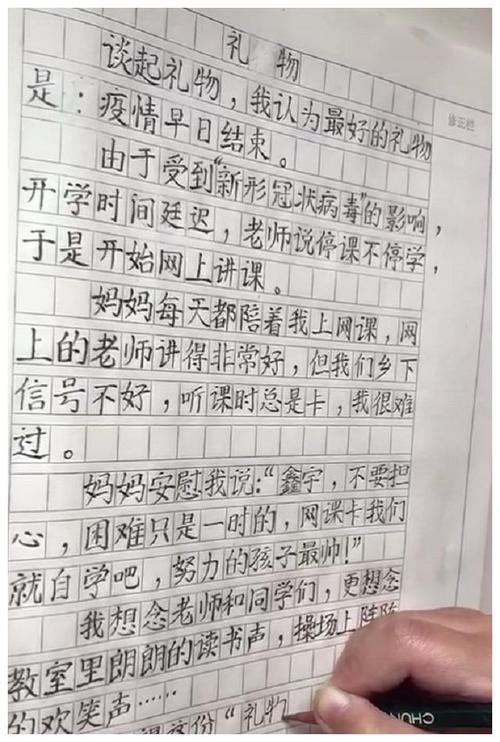 礼物
谈起礼物，我认为最好的礼物
是：疫情早日结束。
由于受到“新形冠状病毒”的影响，
开学时间廷迟，老师说停课不停学，
于是开始网上讲课。
妈妈每天都陪着我上网课，网
上的老师讲得非常好，但我们乡下
信号不好，听课时总是卡，我很难
过。
妈妈安慰我说：“鑫宇，不要担
心，困难只是一时的，网课卡我们
就自学吧，努力的孩子最帅！”
我想念老师和同学们，更想念
教室里朗朗的读书声，操场上阵阵
的欢笑声……
得这份“礼物
修正栏
CHUN